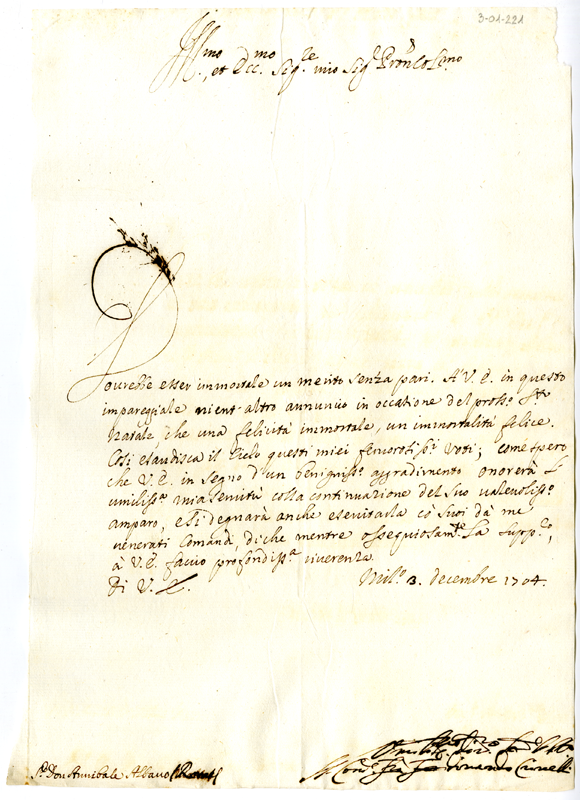 3-01-221
Ill.mo et Ecc.mo Sig.re mio Sig.r Pron Col.mo
Dourebbe esser immortale un merito senza pari. A' V. E. in questo
impareggiale nient'altro annuncio in occatione del pross.o S.to
Natale che una felicità immortale, un immortalità felice.
Così esaudisca il Cielo questi miei feuorosiss.i voti; come spero
che V. E. in segno d'un benigniss.o aggradimento onorerà l'
umiliss.a mia seruitù colla continuazione del suo ualeuoliss.o
amparo, e si degnarà anche esercitarla co' suoi dà me
uenerati Comandi, di che mentre ossequiosam.te La supp.co,
à V. E. faccio profondiss.a riuerenza.
Di V. E. Mil.o 3. decembre 1704.
S.r Don Annibale Albano